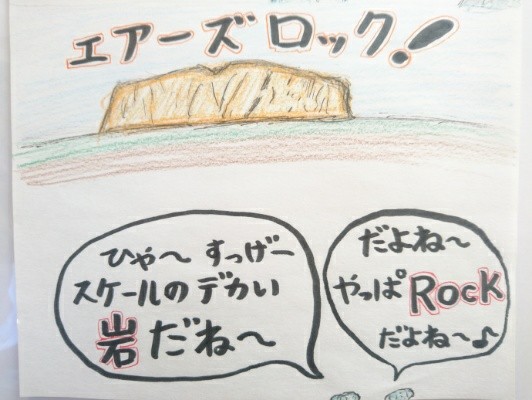 エアーズロック!
ひゃ〜 すっげー
スケールのデカい
岩だね〜
だよね〜
やっぱRocK
だよね〜♪